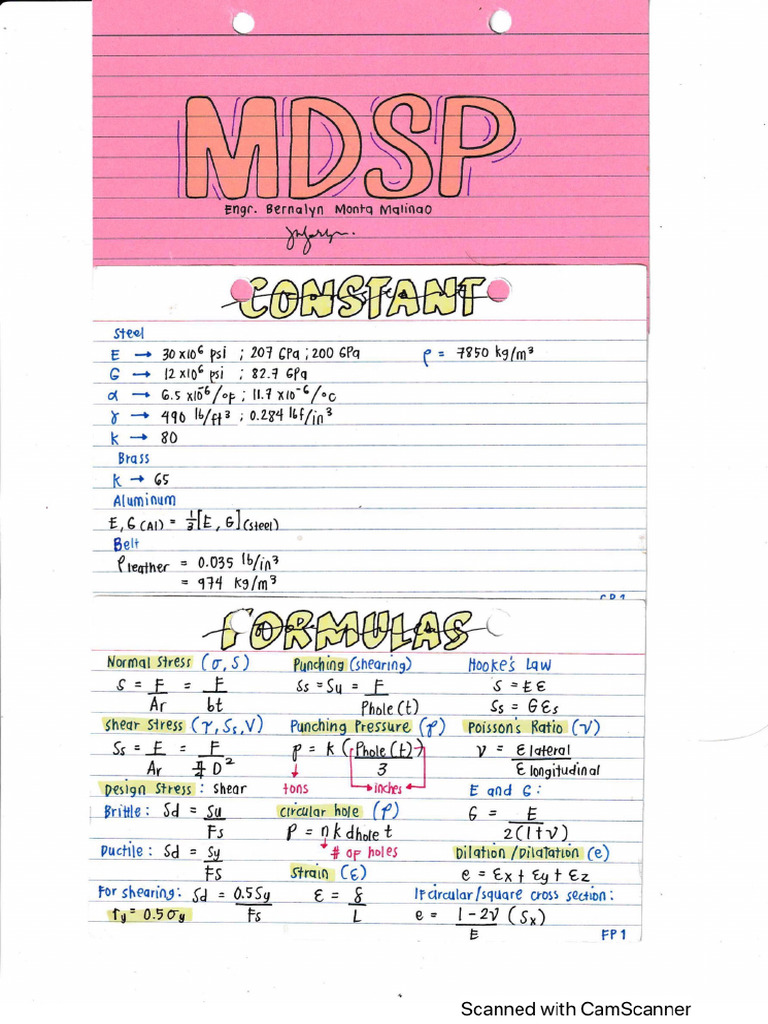 MDSP
Engr. Bernalyn Monta Malinao
CONSTANT
Steel
E → 30 x10⁶ psi ; 207 GPa ; 200 GPa ρ = 7850 kg/m³
G → 12 x10⁶ psi ; 82.7 GPa
α → 6.5 x10⁻⁶/°F ; 11.7 x10⁻⁶/°C
γ → 490 lb/ft³ ; 0.284 lbf/in³
k → 80
Brass
k → 65
Aluminum
E, G (Al) = 1/3 [E, G] (steel)
Belt
ρ leather = 0.035 lb/in³
= 974 kg/m³
FORMULAS
Normal Stress (σ, S)
S = F/Ar = F/bt
Shear Stress (τ, Ss, V)
Ss = F/Ar = F/(π/4 D²)
Design Stress : shear
Brittle: Sd = Su/Fs
Ductile: Sd = Sy/Fs
For shearing: Sd = 0.5Sy/Fs
τy = 0.5σy
Punching (shearing)
Ss = Su = F/Phole(t)
Punching Pressure (P)
P = k (Phole(t)/3)
tons
inches
circular hole (P)
P = n k dhole t
# of holes
Strain (ε)
ε = δ/L
Hooke's Law
S = Eε
Ss = Gεs
Poisson's Ratio (ν)
ν = ε lateral/ε longitudinal
E and G:
G = E/2(1+ν)
Dilation/Dilatation (e)
e = εx + εy + εz
If circular/square cross section:
e = 1-2ν/E (Sx)
FP1
Scanned with CamScanner